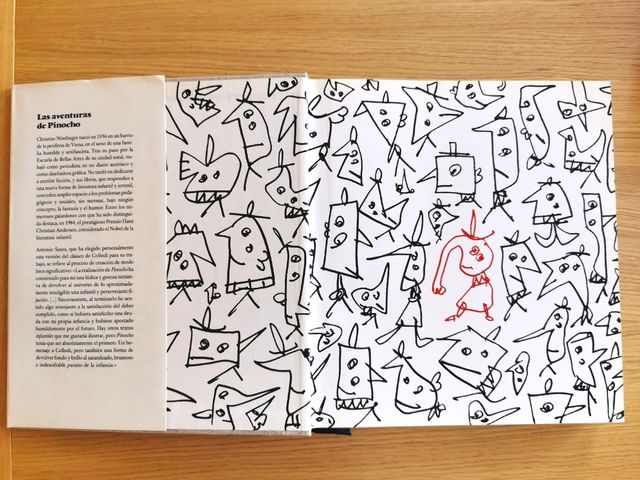 Las aventuras
de Pinocho
Christine Nöstlinger nació en 1936 en un barrio
de la periferia de Viena, en el seno de una fami-
lia humilde y antifascista. Tras su paso por la
Escuela de Bellas Artes de su ciudad natal, tra-
bajó como periodista en un diario austríaco y
como diseñadora gráfica. No tardó en dedicarse
a escribir ficción, y sus libros, que responden a
una nueva forma de literatura infantil y juvenil,
conceden amplio espacio a los problemas peda-
gógicos y sociales, sin mermar, bajo ningún
concepto, la fantasía y el humor. Entre los nu-
merosos galardones con que ha sido distingui-
da destaca, en 1984, el prestigioso Premio Hans
Christian Andersen, considerado el Nobel de la
literatura infantil.
Antonio Saura, que ha elegido personalmente
esta versión del clásico de Collodi para su tra-
bajo, se refiere al proceso de creación de modo
bien significativo: «La realización de Pinocho ha
constituido para mí una lúdica y gozosa tentati-
va de devolver al universo de lo aproximada-
mente inteligible una infantil y perseverante fi-
jación. [...] Sinceramente, al terminarlo he sen-
tido algo semejante a la satisfacción del deber
cumplido, como si hubiera satisfecho una deu-
da con mi propia infancia y hubiese apostado
humildemente por el futuro. Hay otros textos
infantiles que me gustaría ilustrar, pero Pinocho
tenía que ser absolutamente el primero. Un ho-
menaje a Collodi, pero también una forma de
devolver fondo y brillo al zarandeado, brumoso
e indescifrable paraíso de la infancia.»